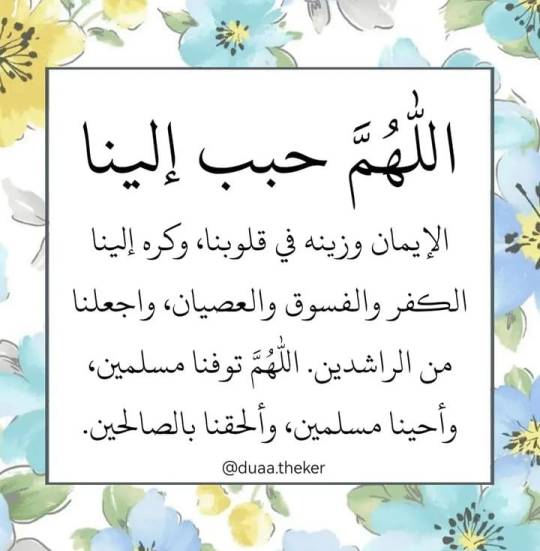 اللَّهُمَّ حبب إلينا
الإيمان وزينه في قلوبنا، وكره إلينا
الكفر والفسوق والعصيان، واجعلنا
من الراشدين. اللَّهُمَّ توفنا مسلمين،
وأحينا مسلمين، وألحقنا بالصالحين.
@duaa.theker